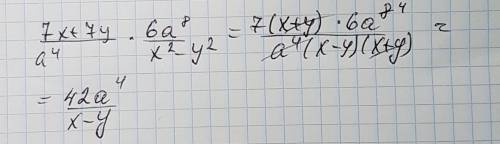 \frac{7x+7y}{a^4} \cdot \frac{6a^8}{x^2-y^2} = \frac{7(x+y) \cdot 6a^{8\,4}}{a^4(x-y)(x+y)} =
= \frac{42a^4}{x-y}